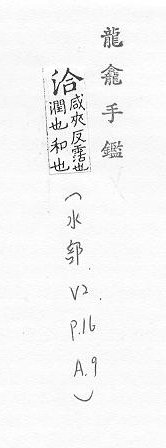 龍龕手鑑
洽
咸夾反霑也
潤也和也
(水部.
V2.
P.16
A.9)